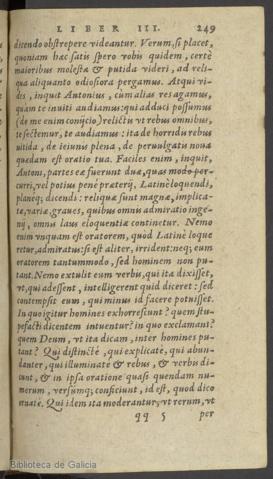 LIBER III. 249
dicendo obstrepere videantur. Verum, si placet,
quoniam hæc satis spero vobis quidem, certè
maioribus molesta & putida videri, ad reli-
qua aliquanto odiosiora pergamus. Atqui vi-
des, inquit Antonius, cùm alias res agamus,
quàm te inuiti audiamus: qui adduci possumus
(de me enim coniicio) relictu vt rebus omnibus,
te sectemur, te audiamus: ita de horridis rebus
nitida, de ieiunis plena, de peruulgatis noua
quædam est oratio tua. Faciles enim, inquit,
Antoni, partes eæ fuerunt duæ, quas modo per-
curri, vel potius penè præterij, Latinè loquendi,
planeq; dicendi: reliquæ sunt magnæ, implica-
tæ, variæ, graues, quibus omnis admiratio inge-
nij, omnis laus eloquentiæ continetur. Nemo
enim vnquam est oratorem, quod Latinè loque
retur, admiratus: si est aliter, irrident: neq; eum
oratorem tantummodo, sed hominem non pu-
tant. Nemo extulit eum verbis, qui ita dixisset,
vt, qui adessent, intelligerent quid diceret: sed
contempsit eum, qui minus id facere potuisset.
In quo igitur homines exhorrescunt? quem stu-
pefacti dicentem intuentur? in quo exclamant?
quem Deum, vt ita dicam, inter homines pu-
tant? Qui distinctè, qui explicatè, qui abun-
danter, qui illuminatè & rebus, & verbis di-
cunt, & in ipsa oratione quasi quendam nu-
merum, versumq; conficiunt, id est, quod dico
ornatè. Qui idem ita moderantur, vt rerum, vt
qq 5 per
Biblioteca de Galicia